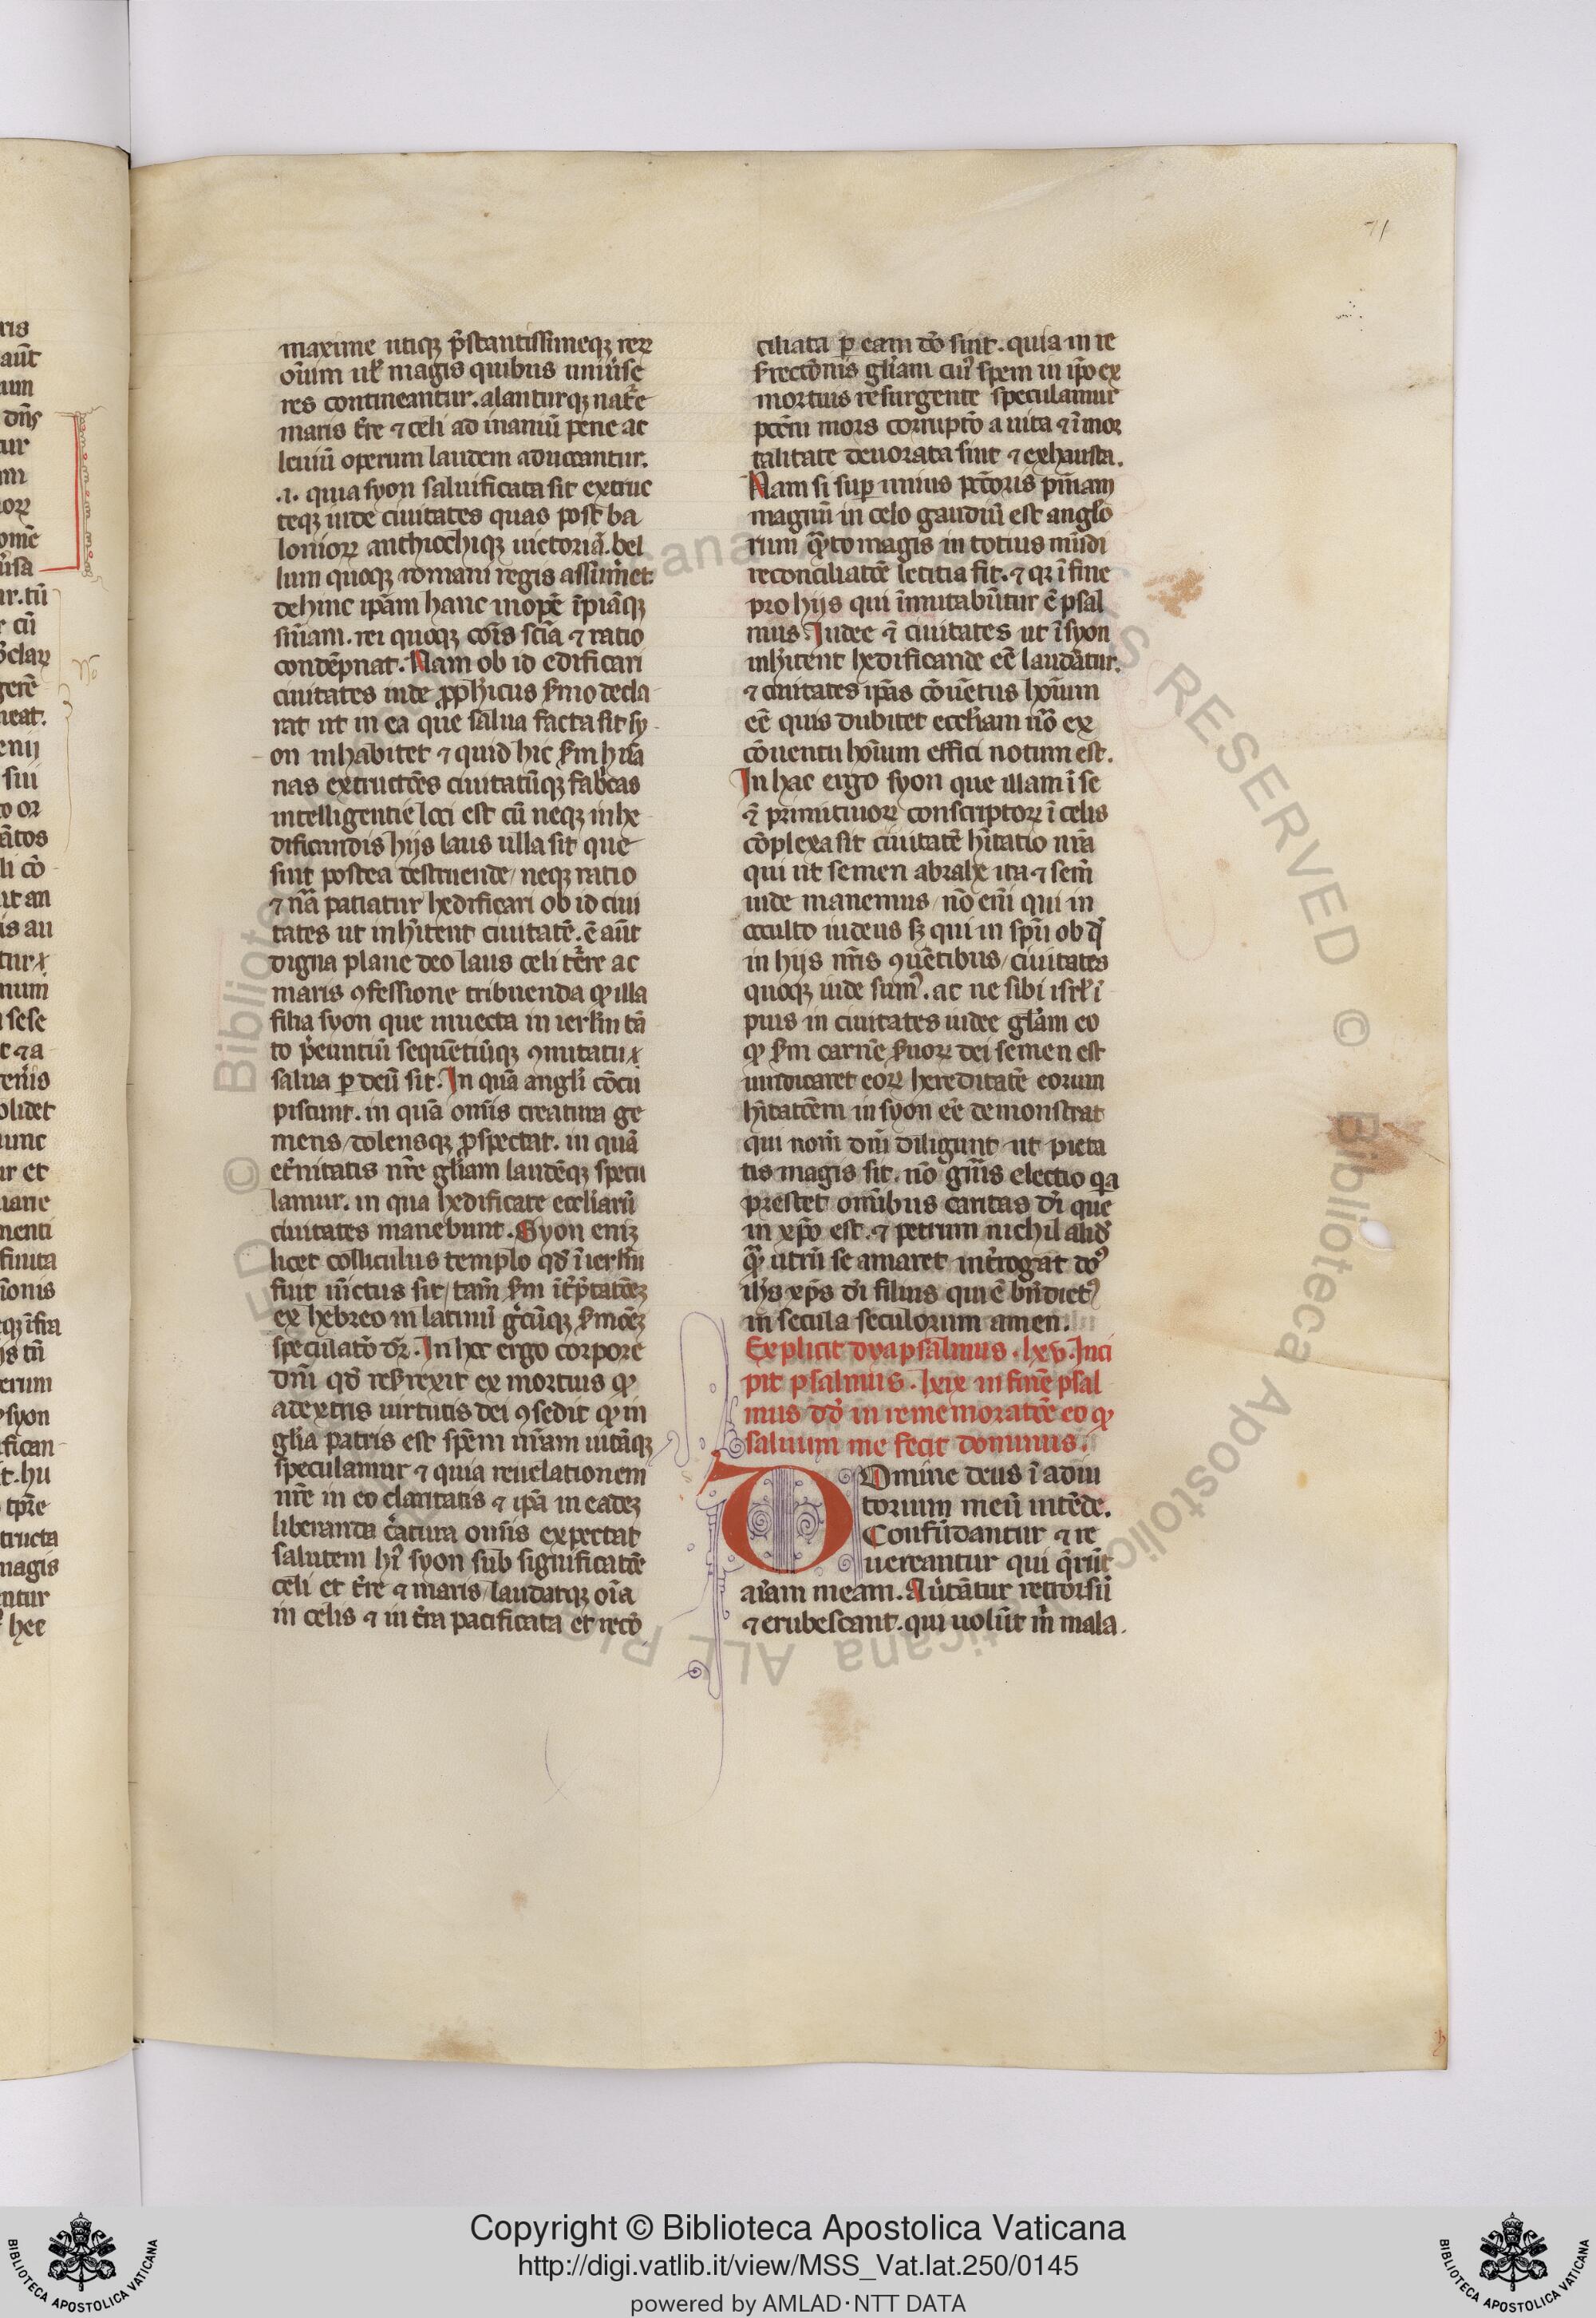 71
maxime utiqꝫ p̄stantissimeqꝫ reꝝ
oīum ul̵ magis quibus uniũse
res contineantur. alanturqꝫ nat̄e
maris t̄re ⁊ celi ad inaniũ pene ac
leuiũ operum laudem aduocantur.
.i. quia syon saluificata sit extruc
teqꝫ iude ciuitates quas post ba
lonioꝝ anthiochiqꝫ uictoriā. bel
lum quoqꝫ romani regis assūmet
dehinc ip̄am hanc inopē īpiāqꝫ
sn̄iam. rei quoqꝫ cōis sc̄ia ⁊ ratio
condēpnat. Nam ob id edificari
ciuitates iude ꝓph̵icus s̵mo decla
rat ut in ea que salua facta sit sy
on inhabitet ⁊ quid hic s̵m hūa
nas extructōes ciuitatūqꝫ fab̄cas
intelligentie loci est cū neqꝫ in he
dificandis hijs laus ulla sit que
sint postea destruende / neqꝫ ratio
⁊ nāa patiatur hedificari ob id ciui
tates ut inh̄itent ciuitatē. ē aūt
digna plane deo laus celi t̄ere ac
maris ꝯfessione tribuenda ꝙ illa
filia syon que inuecta in ierl̵m tā
to p̄euntiū sequētiūqꝫ ꝯmitatu x
salua ꝑ deū sit. In quā angl̵i cōcu
piscunt. in quā om̄is creatura ge
mens / dolensqꝫ ꝓspectat. in quā
et̄nitatis nr̄e gl̵iam laudēqꝫ specu
lamur. in qua hedificate ecc̄liarū
ciuitates manebunt. Syon enīꝫ
licet colliculus templo qđ ī ierl̵m
fuit iūctus sit / tam̄ s̵m īt̄p̄tatōeꝫ
ex hebreo in latinū g̊cūqꝫ s̵mōeꝫ
speculatō dr̄. In hoc ergo corpore
dn̄i qđ res̵rexit ex mortuis ꝙ
adextris uirtutis dei ꝯsedit ꝙ in
gl̵ia patris est spēm nr̄am uitāqꝫ
speculamur ⁊ quia reuelationem
nr̄e in eo claritatis ⁊ ip̄a in eadeꝫ
liberanda c̄atura om̄is expectat
salutem h̄i syon sub significatōe
celi et t̄re ⁊ maris / laudatqꝫ oīa
in celis ⁊ in t̄ra pacificata et recō
ciliata ꝑ eam dō sint. quia in re
s̵rectōnis gl̵iam cuiꝰ spem in ip̄o ex
mortuis resurgente speculamur
pc̄cm mors corruptō a uita ⁊ īmor
talitate deuorata sint ⁊ exhausta.
Nam si suꝑ unius pc̄toris pn̄iam
magnū in celo gaudiū est angl̵o
rum q̄̄to magis in totius mūdi
reconciliatōe letitia fit. ⁊ qꝛ ī fine
pro hijs qui īmutabūtur ē psal
mus. Iudee ⁊̄ ciuitates ut ī syon
inh̄itent hedificande eē laudātur.
⁊ ciuitates ip̄as cōuētus hoīum
eē quis dubitet eccl̵iam nō ex
cōuentu hoīum effici notum est.
In hac ergo syon que illam ī se
⁊̄ primitiuoꝝ conscriptoꝝ ī celis
cōplexa sit ciuitatē h̄itatio nr̄a
qui ut semen abrahe ita ⁊ sem̄
iude manemus / nō eni qui in
occulto iudeus sꝫ qui in spū ob qđ
in hijs nr̄is ꝯuētibus / ciuitates
quoqꝫ iude sumꝰ. ac ne sibi isrl̵ ī
pius in ciuitates iudee gl̵am eo
ꝙ s̵m carnē s̵uoꝝ dei semen est
uindicaret eoꝝ hereditatē eorum
h̄itatōem in syon eē demonstrat
qui nom̄ dn̄i diligunt / ut pieta
tis magis sit. nō gn̄is electio qꝛ
prestet om̄ibus caritas dī que
in xp̄o est. ⁊ petrum nichil aliđ
q̄̄ utrū se amaret int̄rogat dōꝰ
ih̄s xp̄s dī filius qui ē bn̄dictꝰ
in secula seculorum amen.
Explicit dyapsalmus. lxv. Inci
pit psalmus. lxix in finē psal
mus dđ in rememoratōe eo ꝙ
saluum me fecit dominus.
Domine deus ī adiu
torium meū intēde.
Confūdantur ⁊ re
uereantur qui q̄rūt
aīam meam. Au̔tātur retrorsū
⁊ erubescant. qui uolūt m̄ mala.
Copyright © Biblioteca Apostolica Vaticana
http://digi.vatlib.it/view/MSS_Vat.lat.250/0145
powered by AMLAD·NTT DATA
BIBLIOTECA APOSTOLICA VATICANA
BIBLIOTECA APOSTOLICA VATICANA